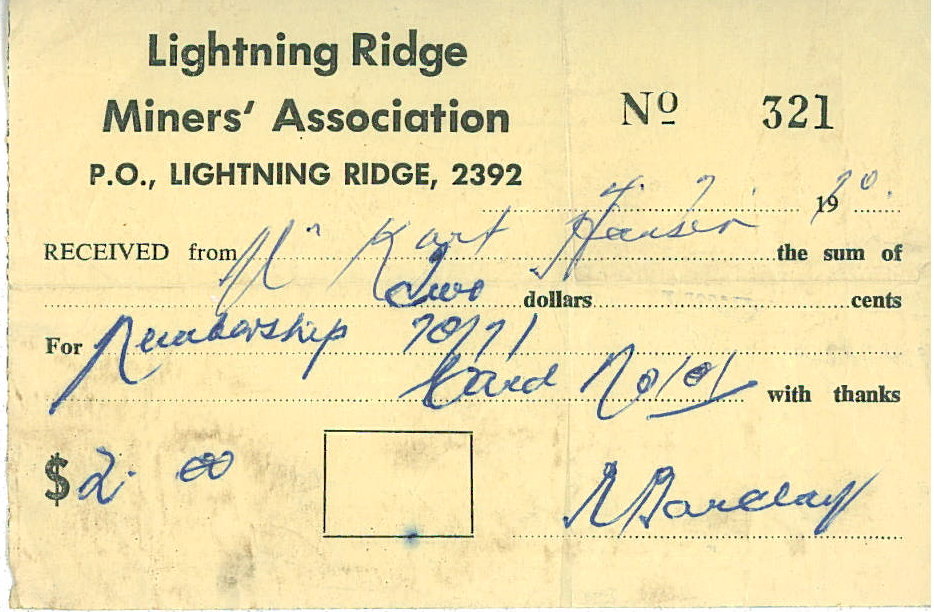 Lightning Ridge
Miners' Association
Nº 321
P.O., LIGHTNING RIDGE, 2392
4. 7. 1970.
RECEIVED from Mr Kart Hansen the sum of
Two dollars cents
For Membership 70/71
Card No 101 with thanks
$ 2. 00
Barclay